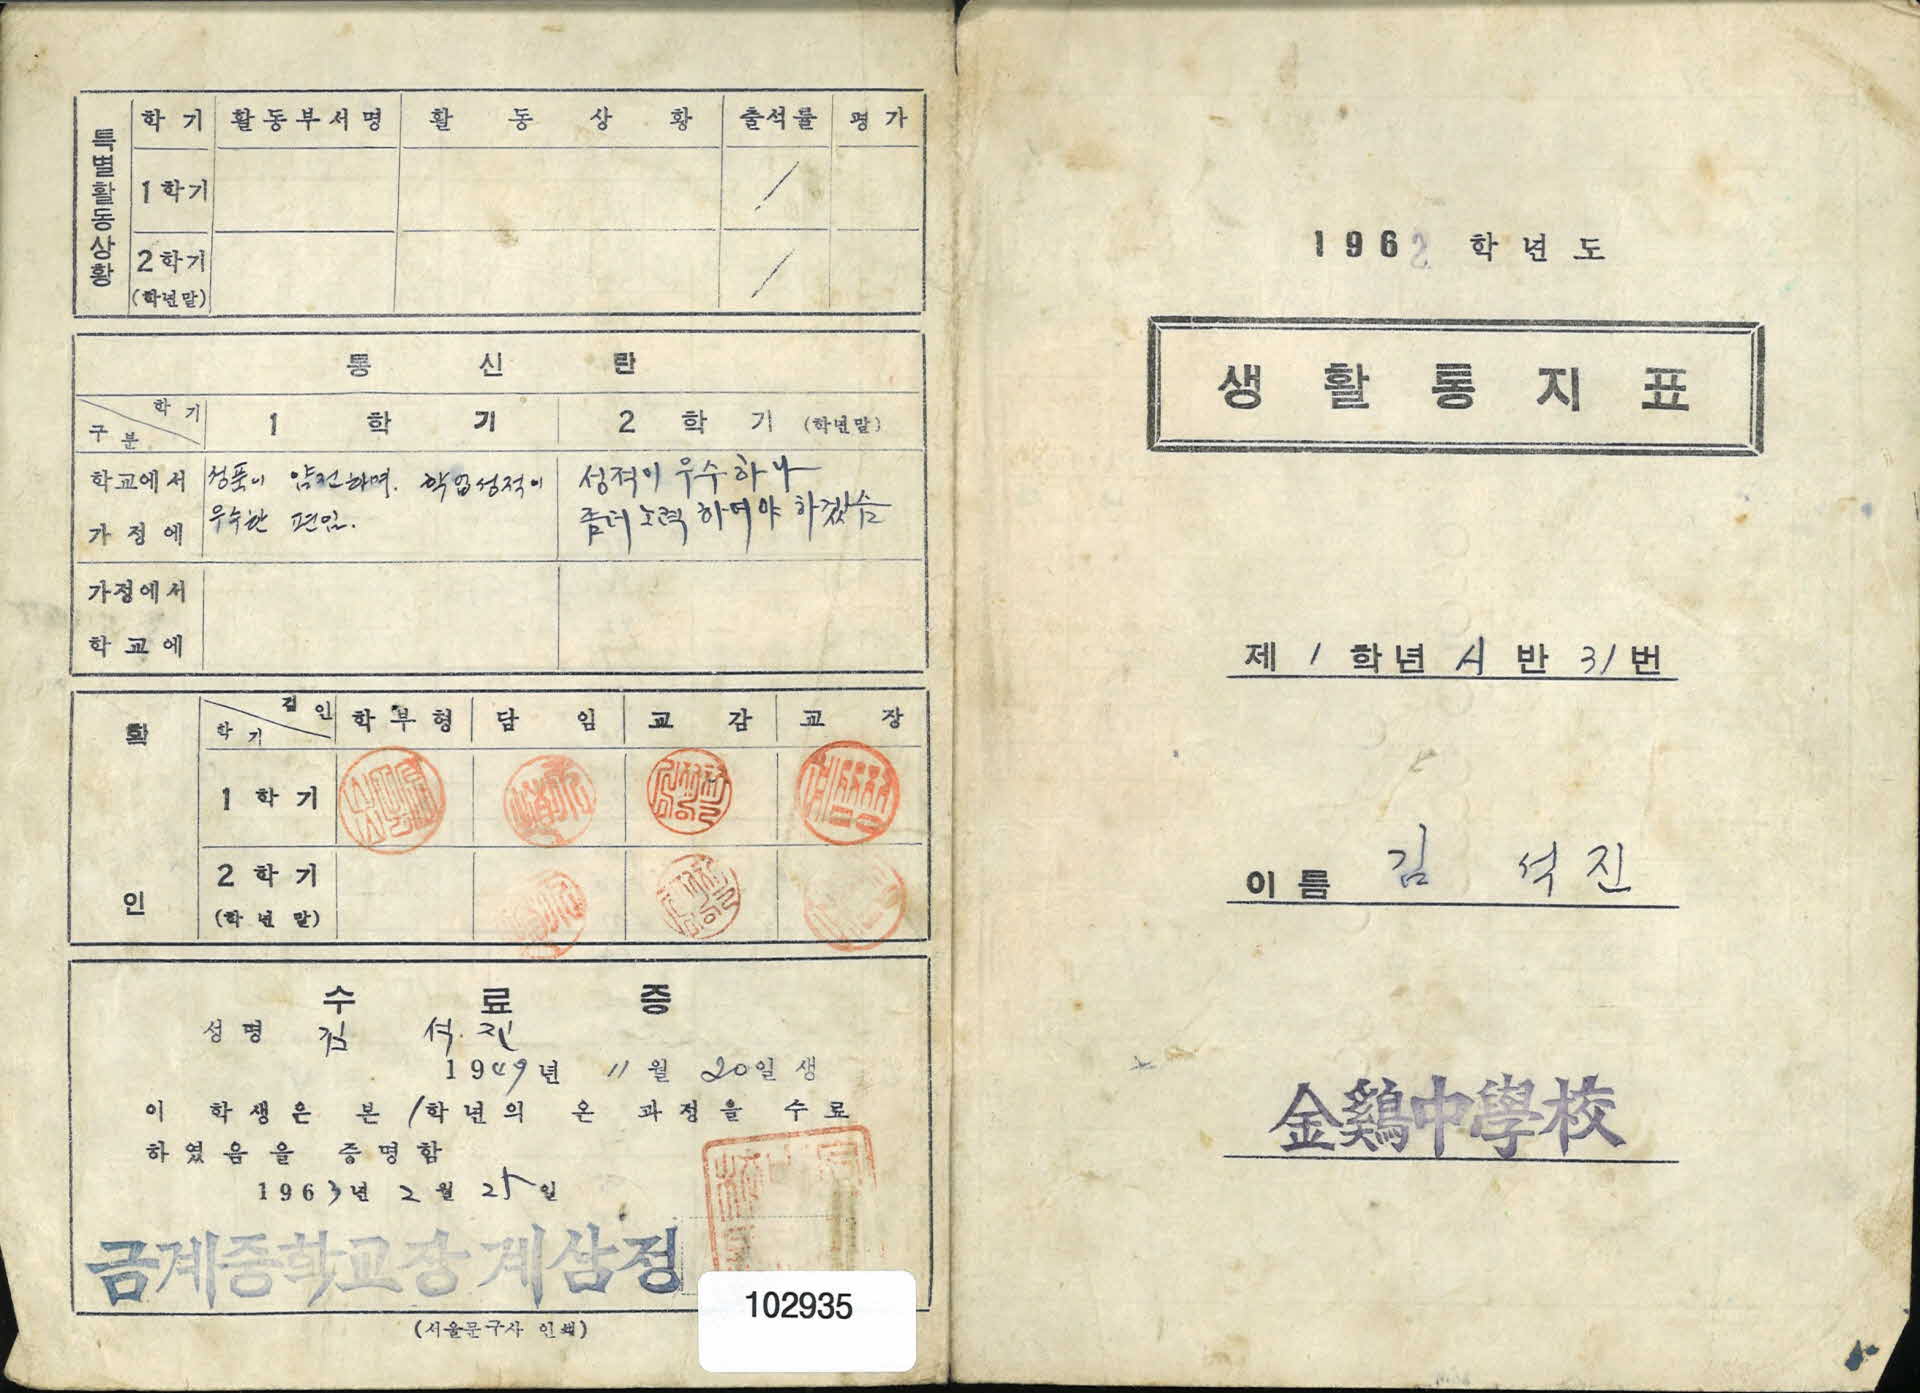 특별활동상황
학기 활동부서명 활동상황 출석률 평가
1학기 /
2학기 /
(학년말)
통신란
학기
구분
1학기 2학기 (학년말)
학교에서 가정에
성품이 얌전하며. 학업성적이
우수한 편임.
성적이 우수하나
좀더 노력 하여야 하겠슴
가정에서
학교에
확인
검인
학기
학부형 담임 교감 교장
1학기
2학기
(학년말)
수료증
성명 김 석진
1949년 11월 20일생
이 학생은 본 1학년의 온 과정을 수료
하였음을 증명함
1963년 2월 25일
금계중학교장 계삼정
102935
(서울문구사 인쇄)
1962 학년도
생활통지표
제 1 학년 A 반 31번
이름 김 석진
金鷄中學校